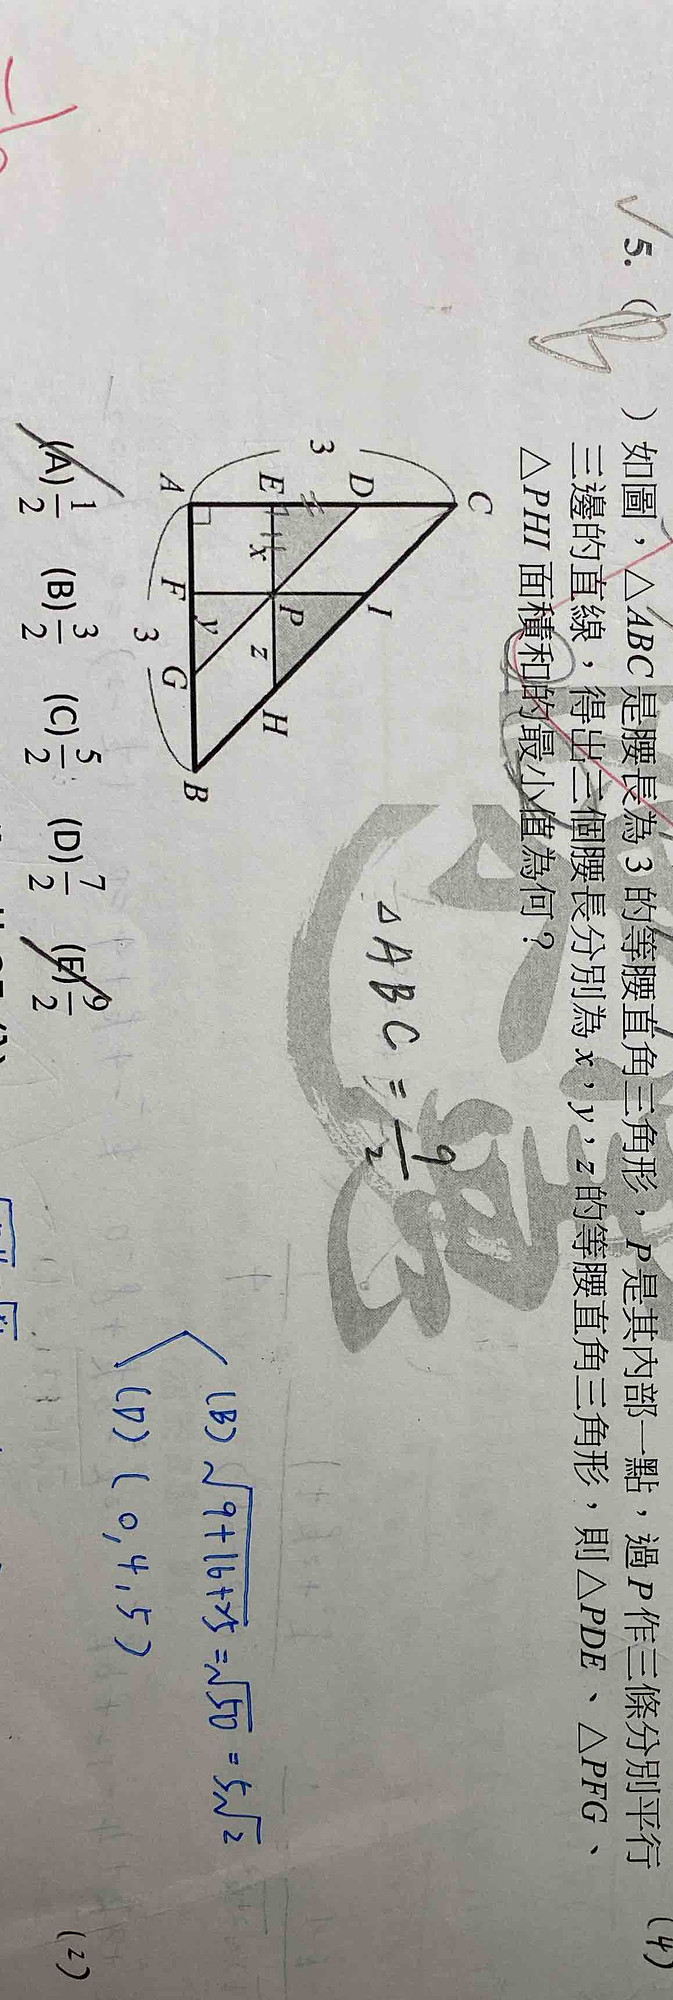 5. ( B ) 如圖，△ABC 是腰長為 3 的等腰直角三角形，P 是其內部一點，過 P 作三條分別平行
三邊的直線，得出三個腰長分別為 x，y，z 的等腰直角三角形，則 △PDE、△PFG、
△PHI 面積和的最小值為何？
C
D
I
3
E
x
P
z
H
y
A
F
G
B
3
△ABC = 9/2
(A) 1/2 (B) 3/2 (C) 5/2 (D) 7/2 (E) 9/2
(B) √9+16+25 = √50 = 5√2
(D) (0,4,5)
(4)
(2)